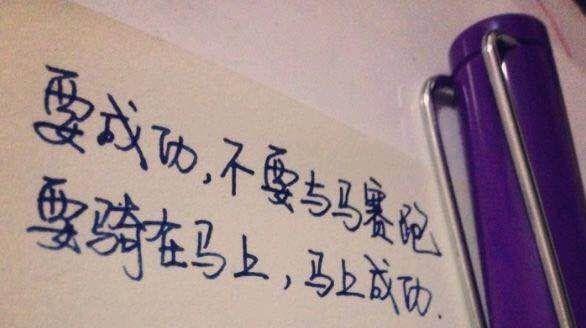 要成功,不要与马赛跑
要骑在马上,马上成功.